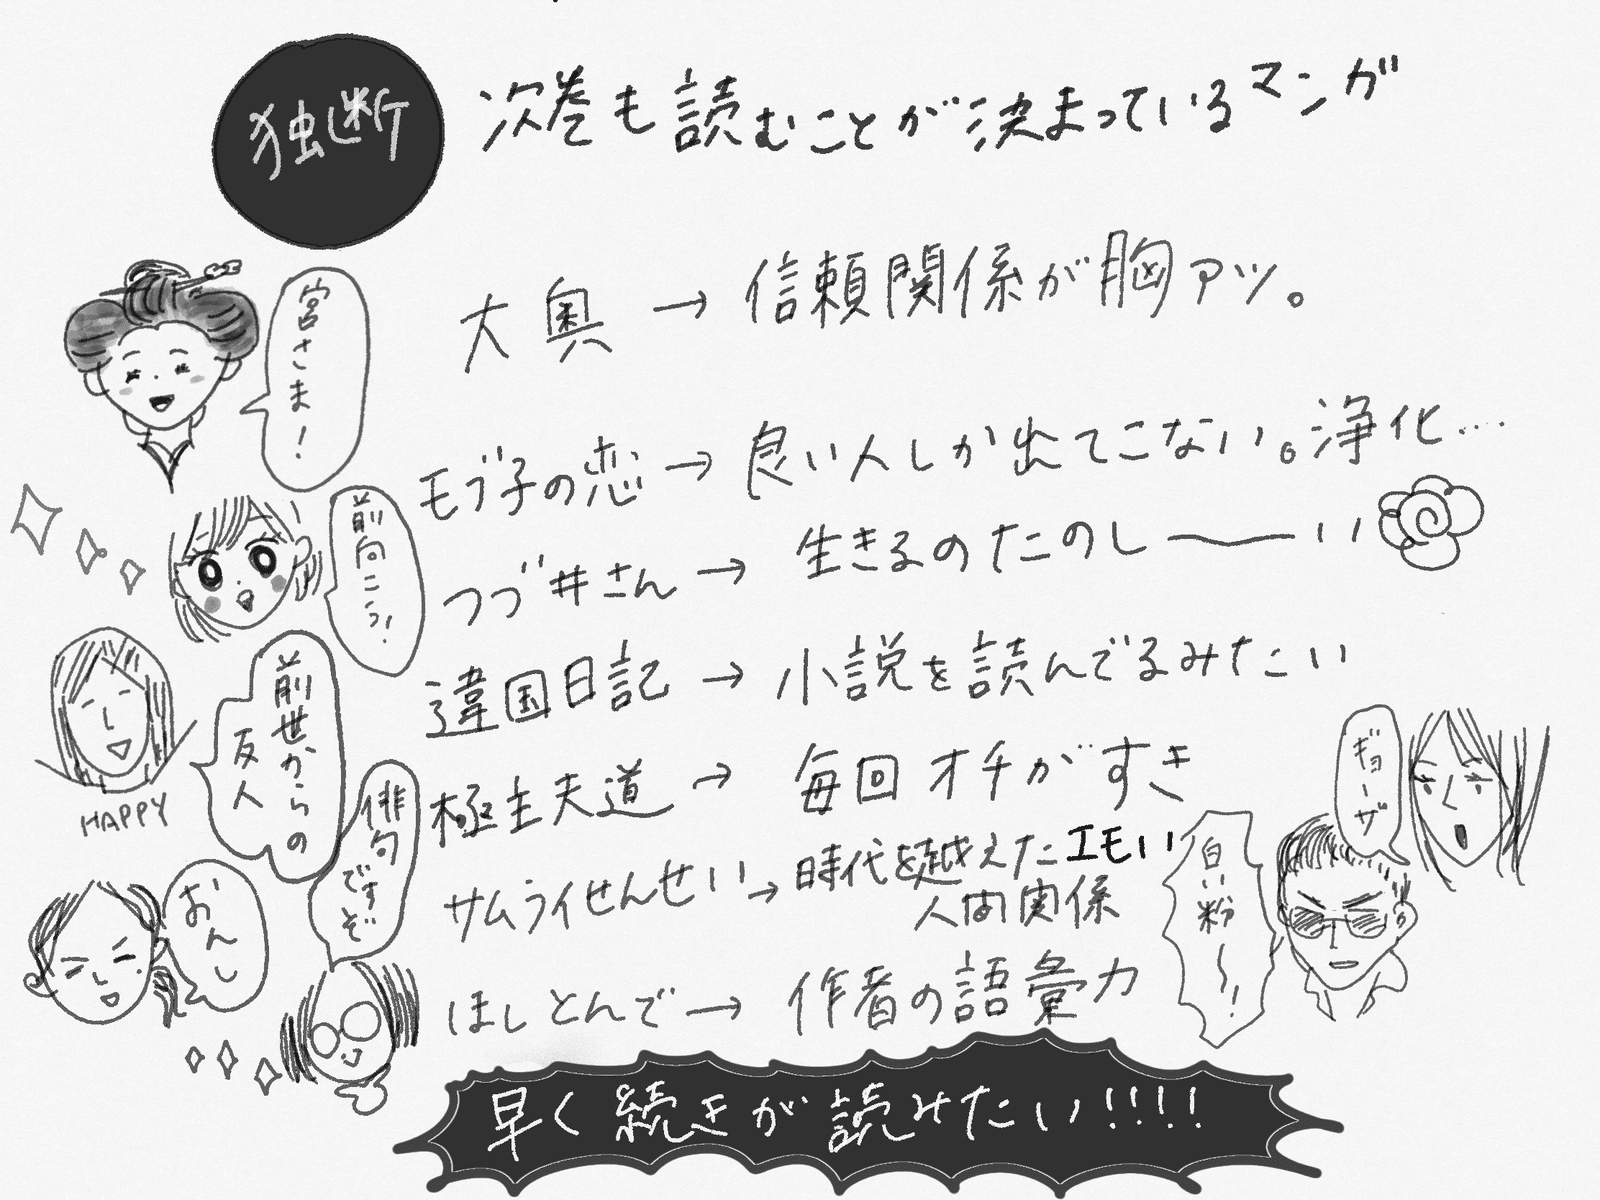 独断
次巻も読むことが決まっているマンガ
宮さま!
大奥→信頼関係が胸アツ。
モブ子の恋→良い人しか出てこない。浄化…
前向こう!
つづ井さん→生きるのたのしーい
前世からの
友人
HAPPY
違国日記→小説を読んでるみたい
極主夫道→毎回オチがすき
ギョーザ
白い粉〜!
俳句ですぞ
サムライせんせい→時代を越えたエモい
人間関係
おんし
ほしとんで→作者の語彙力
早く続きが読みたい!!!!